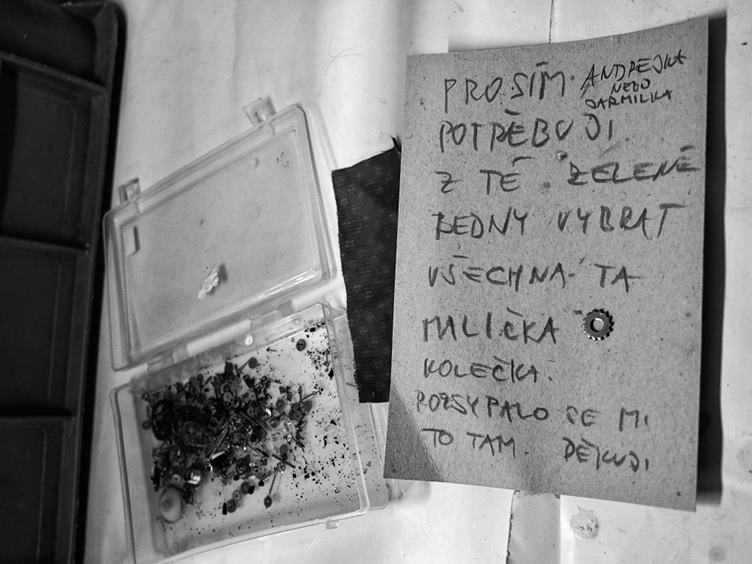 PROSÍM ANDREJKA
NEBO
JARMILKA
POTŘEBUJI
Z TÉ ZELENÉ
BEDNY VYBRAT
VŠECHNA TA
MALIČKÁ
KOLEČKA.
ROZSYPALO SE MI
TO TAM. DĚKUJI